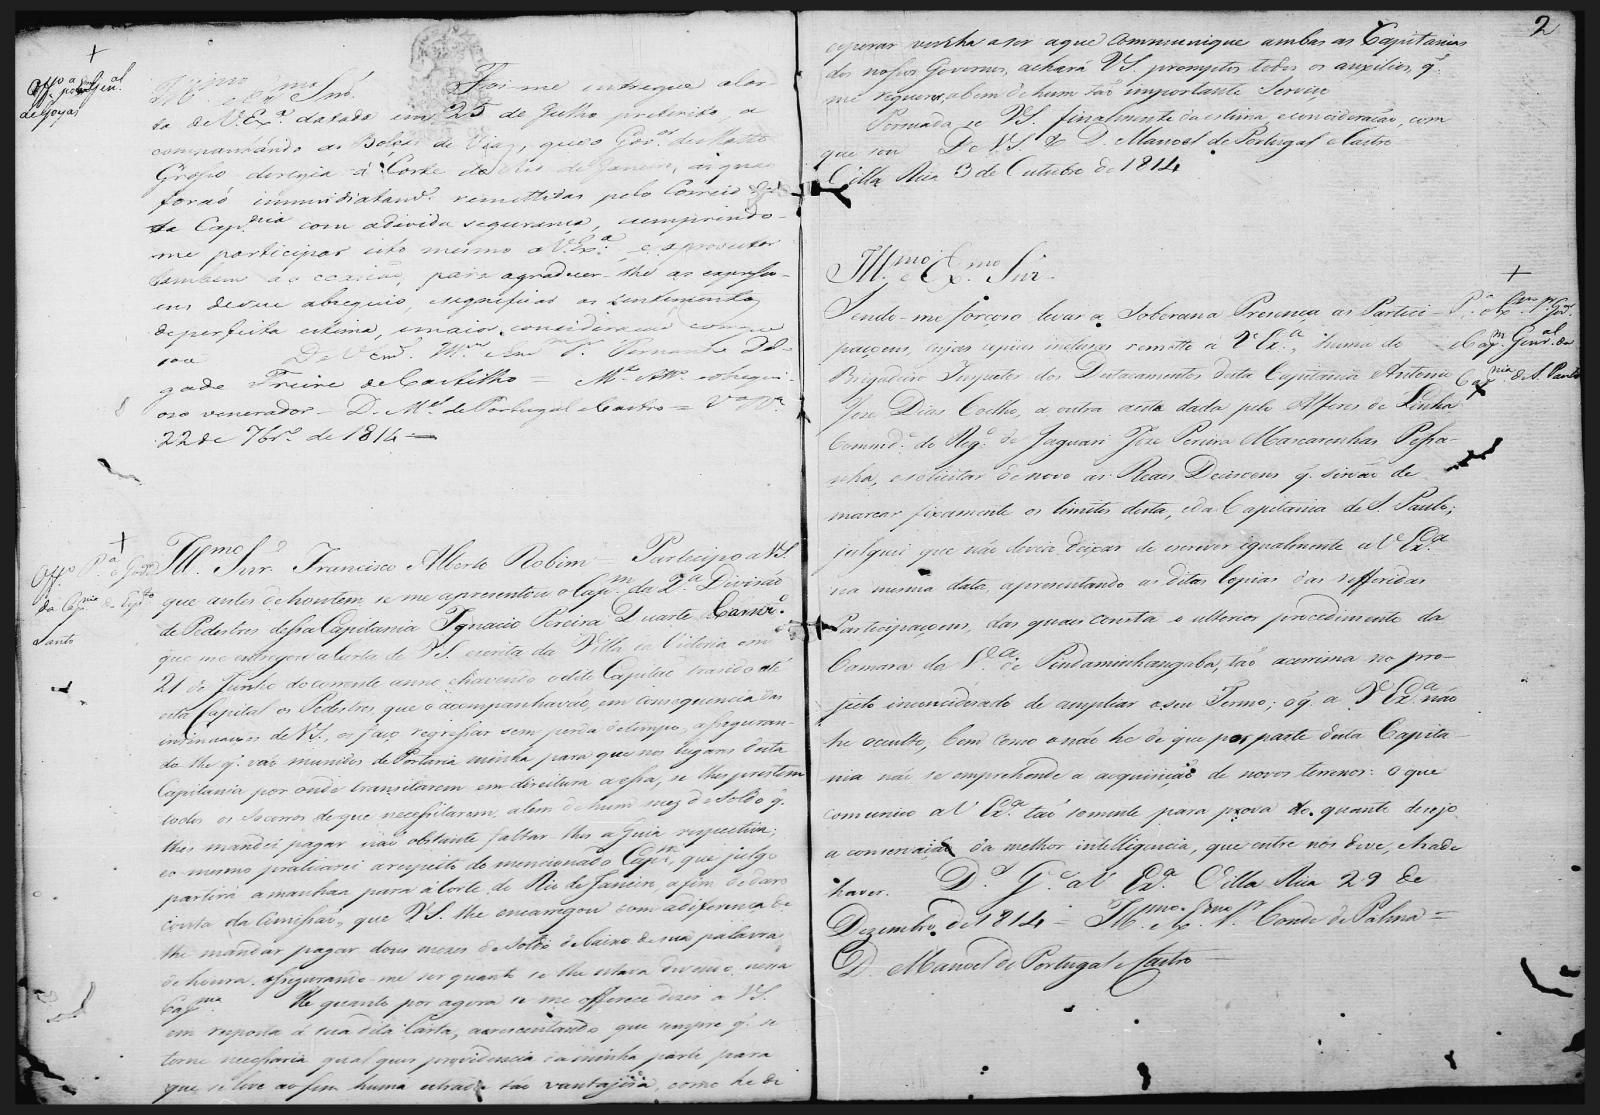 Off.º a pª o Gen.al
de Goyas
Ill.mo e Ex.mo Snr. Foi-me entregue a Car
ta de V. Ex.ª datada em 25 de Julho preterito, a
companhando as Bolças de Viag, que o Gov.or de Matto
Grosso dirigia á Corte do Rio de Janeiro, as quaes
foraõ immediatam.e remettidas pelo Correio des
ta Cap.nia com a devida segurança, cumprindo-
me participar isto mesmo a V. Ex.ª, e aproveitar
tambem a occasiaõ, para agradecer-lhe as expresso-
ens deseu obsequio, e significar os sentimentos
de perfeita estima, e maior consideraçaõ com que
sou De V. Ex.ª Ill.mo e Ex.mo Sr. Fernando Del-
gado Freire de Castilho = M.to Att.o e obsequi-
oso venerador = D. M.el de Portugal e Castro = V.ª R.ª
22 de 7br.o de 1814 =
Off.o Pª o Gov.or
da Cap.nia do Esp.to
Santo
Ill.mo Snr. Francisco Alberto Robim = Participo a VS.
que antes de hontem se me apresentou o Cap.m da 2.ª Divisaõ
de Pedestres dessa Capitania Ignacio Pereira Duarte Carnr.o
que me entregou a Carta de VS. escrita da Villa da Victoria em
21 de Junho do corrente anno, e havendo o dito Capitaõ trazido até
esta Capital os Pedestres, que o acompanhavaõ, em consequencia das
insinuaçoes de VS., os faço regressar sem perda de tempo, asseguran-
do lhe q. vaõ munidos de Portaria minha para que nos lugares desta
Capitania por onde transitarem em direitura a essa, se lhes prestem
todos os Socorros de que necessitarem, alem de hum mez de Soldo q.
lhes mandei pagar naõ obstante faltar-lhes a Guia respectiva;
eo mesmo praticarei a respeito do mencionado Cap.m, que julgo
partirá amanhaa para a Corte do Rio de Janeiro, a fim de dar
conta da Comissaõ, que VS. lhe encarregou com a diferença de
lhe mandar pagar dous mezes de Soldo debaixo de sua palavra
de honra, assegurando-me ser quanto se lhe estava devendo nessa
Cap.nia He quanto por agora se me offerece dizer a VS.
em resposta á sua dita Carta, accrescentando que sempre q. se
torne necessaria qual quer providencia da minha parte para
que se leve ao fim huma estrada taõ vantajosa, como he de
2
esperar venha a ser a que communique ambas as Capitanias
dos nossos Governos, achará VS. promptos todos os auxilios, q.
me requerer, abem de hum taõ importante Serviço
Persuada se VS. finalmente da estima, e consideraçaõ, com
que sou De VS. & D. Manoel de Portugal e Castro
Villa Rica 3 de Outubro de 1814
P.ª o Ill.mo e Ex.mo Sr. Gov.or
e Cap.m Gener.al da
Cap.nia de S. Paulo
Ill.mo e Ex.mo Snr.
Sendo-me forçoso levar a Soberana Presença as Partici-
paçoens, cujas copias inclusas remetto a V. Ex.ª, huma do
Brigadeiro Inspector dos Destacamentos desta Capitania Antonio
Jose Dias Coelho, a outra aesta dada pelo Alferes de Linha
Command.e do Reg.o de Jaguari Joze Pereira Mascarenhas Pessa-
nha, e solicitar de novo as Reaes Decisoens q. sirvaõ de
marcar fixamente os limites desta, e da Capitania de S. Paulo;
julguei que naõ devia deixar de escrever igualmente a V. Ex.ª
na mesma data, apresentando as ditas Copias das refferidas
Participaçoens, das quaes consta o ulterior procedimento da
Camara da V.ª de Pindaminhangaba, taõ acerrima no pro-
jecto inconciderado de ampliar o seu Termo; o q. a V. Ex.ª naõ
he occulto, bem como o naõ he de que por parte desta Capita-
nia naõ se emprehende a acquisiçaõ de novos terrenos: o que
comunico a V. Ex.ª taõ somente para prova do quanto desejo
a conservaçaõ da melhor intelligencia, que entre nós deve, e hade
haver. D.s G.e a V. Ex.ª Villa Rica 29 de
Dezembro de 1814 = Ill.mo e Ex.mo Sr. Conde de Palma =
D. Manoel de Portugal e Castro